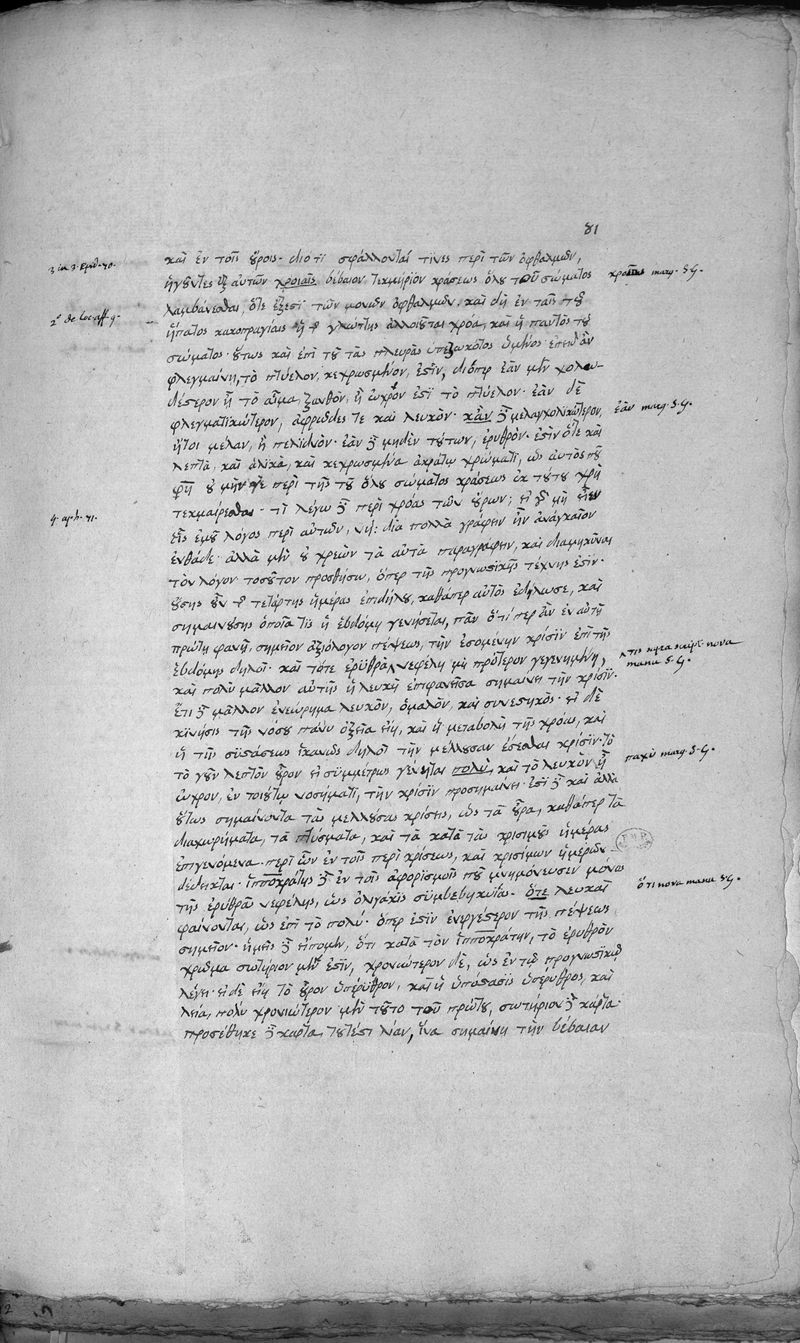 81
καὶ ἐν τοῖς οὔροις· διότι σφάλλονταί τινες περὶ τῶν ὀφθαλμῶν,
3 in 3. Epid. 70.
ἡγοῦντες ἐξ αὐτῶν χροιαῖς βέβαιον τεκμήριον κράσεως ὅλου τοῦ σώματος
marg. S.G.
λαμβάνεσθαι, ὅτε ἔξεστι τῶν μονῶν ὀφθαλμῶν. καὶ δὴ ἐν ταῖς τοῦ
2º de loc. aff. 9.
ἥπατος κακοπραγίαις ἡ τῆς γλώττης ἀλλοιοῦται χρόα, καὶ ἡ παντὸς τοῦ
σώματος· οὕτως καὶ ἐπὶ τοῦ τὰς πλευρὰς ὑπεζωκότος ὑμένος ἐπειδὰν
φλεγμαίνῃ, τὸ πτύελον κεχρωσμένον ἐστίν, διόπερ ἐὰν μὲν χολω-
δέστερον ᾖ τὸ αἷμα, ξανθὸν, ἢ ὠχρὸν ἐστὶ τὸ πτύελον· ἐὰν δὲ
φλεγματικώτερον, ἀφρῶδες τε καὶ λευκὸν· κἂν δὲ μελαγχολικώτερον,
ἐὰν marg. S.G.
ἤτοι μέλαν, ἢ πελιδνὸν· ἐὰν δὲ μηδὲν τούτων, ἐρυθρὸν· ἐστὶν ὅτε καὶ
λεπτὰ, καὶ ἁλικὰ, καὶ κεχρωσμένα ἀκράτῳ χρώματι, ὡς αὐτὸς πού
φησι οὐ μὴν γε περὶ τῆς τοῦ ὅλου σώματος κράσεως ἐκ τούτου χρὴ
τεκμαίρεσθαι· τί λέγω δὲ περὶ χρόας τῶν οὔρων; εἰ γὰρ μὴ
4. aph. 71.
εἷς ἐμοῦ λόγος περὶ αὐτῶν, διὰ πολλὰ γράφειν ἦν ἀναγκαῖον
ἐνθάδε· ἀλλὰ μὴν οὐ χρεὼν τὰ αὐτὰ παραγράφειν, καὶ διαμηκύναι
τὸν λόγον τοσοῦτον προσθήσω, ὅπερ τῆς προγνωστικῆς τέχνης ἐστίν·
οὔσης οὖν τῆς τετάρτης ἡμέρας ἐπιδήλου, καθάπερ αὐτὸς ἐδήλωσε, καὶ
σημαινούσης ὁποῖα τὶς ἡ ἑβδόμη γενήσεται, πᾶν ὅτι περ ἂν ἐν αὐτῇ
πρώτῃ φανῇ, σημεῖον ἀξιόλογον πέψεως, τὴν ἐσομένην κρίσιν ἐπὶ τῆς
ἑβδόμης δηλοῖ· καὶ τότε ἐρυθρὰ νεφέλη μὴ πρότερον γεγενημένη,
manu S.G.
καὶ πολὺ μᾶλλον αὐτῆς ἡ λευκὴ ἐπιφανεῖσα σημαίνει τὴν κρίσιν·
ἔτι δὲ μᾶλλον ἐναιώρημα λευκὸν, ὁμαλὸν, καὶ συνεστηκὸς· εἰ δὲ
κίνησις τῆς νόσου πάνυ ὀξεῖα εἴη, καὶ ἡ μεταβολὴ τῆς χρόας, καὶ
ἡ τῆς συστάσεως ἱκανῶς δηλοῖ τὴν μέλλουσαν ἔσεσθαι κρίσιν· τὸ
τὸ γοῦν λεπτὸν οὖρον εἰ συμμέτρως γένηται πολὺ, καὶ τὸ λευκὸν ᾖ
παχὺ marg. S.G.
ὠχρον, ἐν τοιούτῳ νοσήματι, τὴν κρίσιν προσημαίνει· ἐστὶ δὲ καὶ ἄλλα
οὕτως σημαίνοντα τὰς μελλούσας κρίσεις, ὡς τὰ οὖρα, καθάπερ τὰ
διαχωρήματα, τὰ πτύσματα, καὶ τὰ κατὰ τὰς κρισίμους ἡμέρας
ἐπιγενόμενα· περὶ ὧν ἐν τοῖς περὶ κρίσεως, καὶ κρισίμων ἡμερῶν
δέδεικται· Ἱπποκράτης δὲ ἐν τοῖς ἀφορισμοῖς που μνημόνευσεν μόνας
τῆς ἐρυθρᾶς νεφέλης, ὡς ὀλιγάκις συμβεβηκυίας· ὅτε λευκαὶ
ὅτι nova manu S.G.
φαίνονται, ὡς ἐπὶ τὸ πολύ· ὅπερ ἐστὶν ἐνεργέστερον τῆς πέψεως
σημεῖον· ἡμεῖς δὲ εἴπομεν, ὅτι κατὰ τὸν Ἱπποκράτην, τὸ ἐρυθρὸν
χρῶμα σωτήριον μὲν ἐστὶν, χρονιώτερον δὲ, ὡς ἐν τῷ προγνωστικῷ
λέγει· εἰ δὲ εἴη τὸ οὖρον ὑπέρυθρον, καὶ ἡ ὑπόστασις ὑπέρυθρος, καὶ
λεία, πολὺ χρονιώτερον μὲν τοῦτο τοῦ πρώτου, σωτήριον δὲ κάρτα·
προσέθηκε δὲ κάρτα, τουτέστι λίαν, ἵνα σημαίνῃ τὴν βέβαιαν